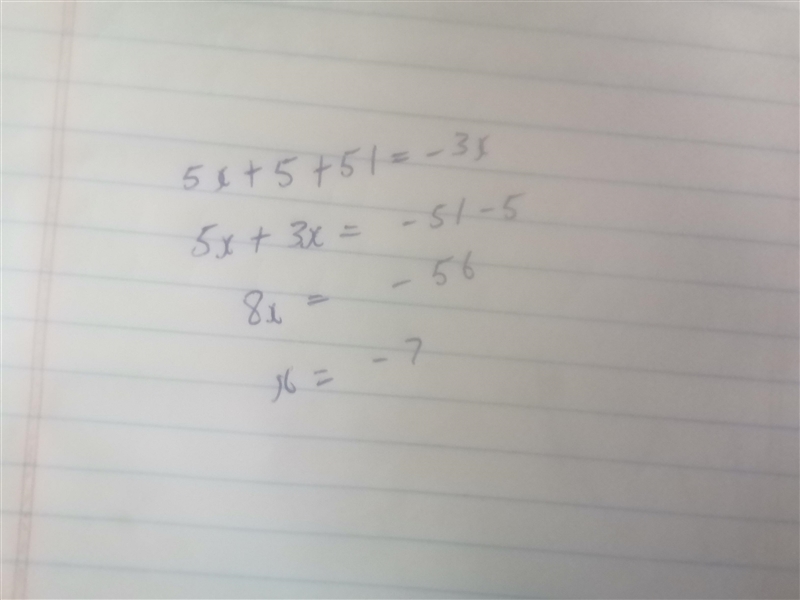 5x + 5 + 51 = - 3x
5x + 3x = - 51 - 5
8x = - 56
x = - 7